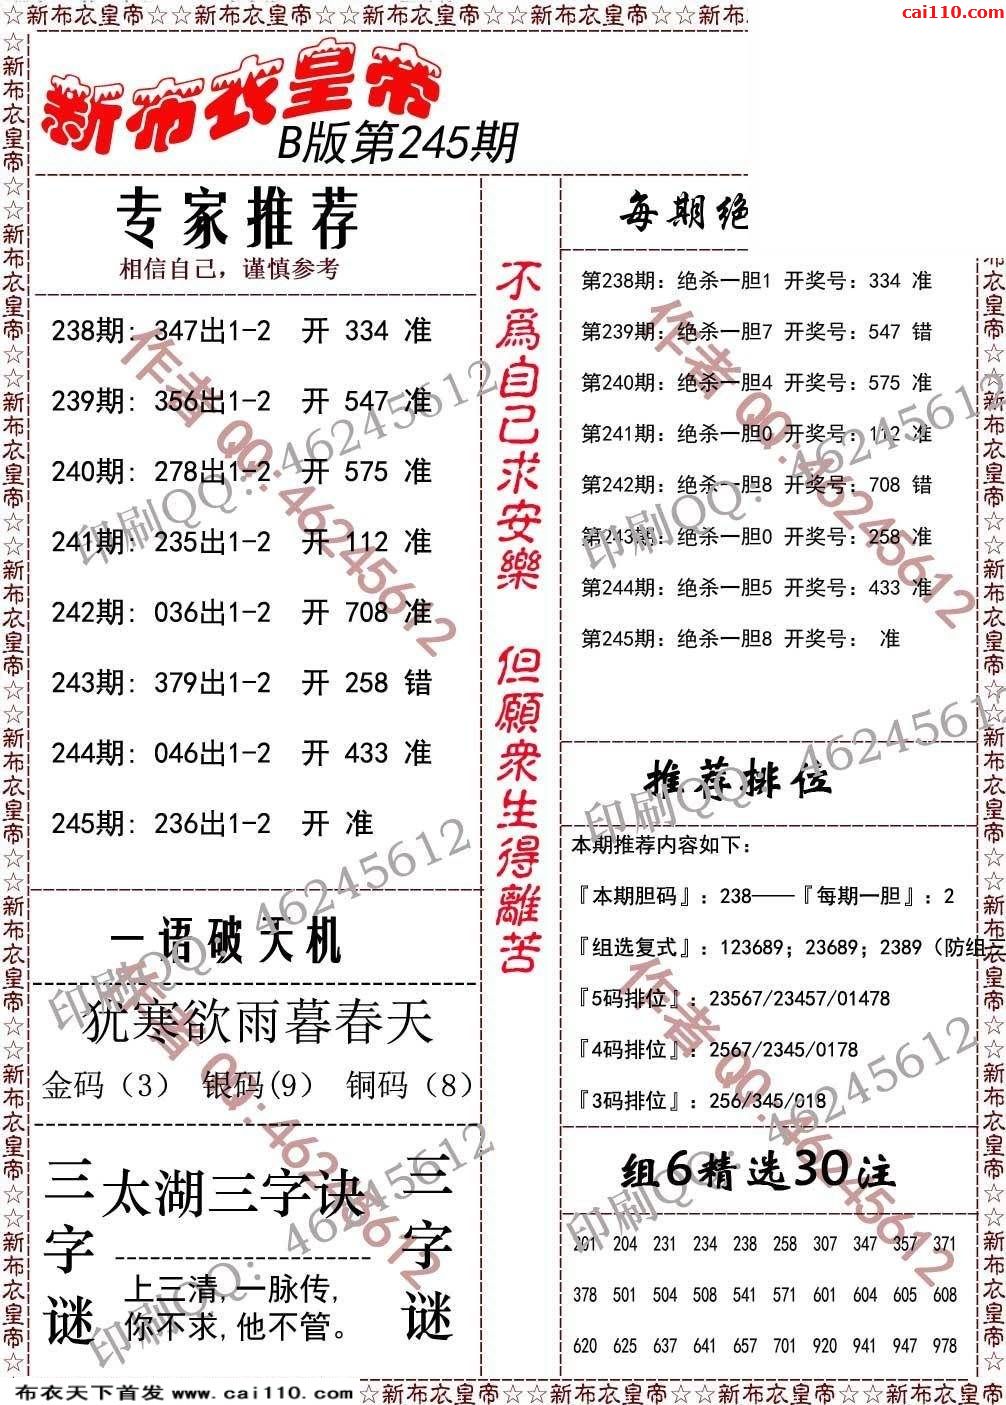 ☆新布衣皇帝☆☆新布衣皇帝☆☆新布衣皇帝☆☆新布衣皇帝☆☆新布
cai110.com
新布衣皇帝
B版第245期
专家推荐
相信自己，谨慎参考
238期: 347出1-2 开 334 准
239期: 356出1-2 开 547 准
240期: 278出1-2 开 575 准
241期: 235出1-2 开 112 准
242期: 036出1-2 开 708 准
243期: 379出1-2 开 258 错
244期: 046出1-2 开 433 准
245期: 236出1-2 开 准
一语破天机
犹寒欲雨暮春天
金码（3） 银码(9） 铜码（8）
三字谜
太湖三字诀
上三清,一脉传,
你不求,他不管。
三字谜
不爲自己求安樂 但願衆生得離苦
每期绝
第238期: 绝杀一胆1 开奖号: 334 准
第239期: 绝杀一胆7 开奖号: 547 错
第240期: 绝杀一胆4 开奖号: 575 准
第241期: 绝杀一胆0 开奖号: 112 准
第242期: 绝杀一胆8 开奖号: 708 错
第243期: 绝杀一胆0 开奖号: 258 准
第244期: 绝杀一胆5 开奖号: 433 准
第245期: 绝杀一胆8 开奖号: 准
推荐排位
本期推荐内容如下:
『本期胆码』: 238——『每期一胆』: 2
『组选复式』: 123689; 23689; 2389（防组三
『5码排位』: 23567/23457/01478
『4码排位』: 2567/2345/0178
『3码排位』: 256/345/018
组6精选30注
201 204 231 234 238 258 307 347 357 371
378 501 504 508 541 571 601 604 605 608
620 625 637 641 657 701 920 941 947 978
作者 QQ:46245612
印刷QQ: 46245612
作者 QQ:46245612
印刷QQ: 46245612
印刷QQ: 46245612
印刷QQ: 46245612
作者 QQ:46245612
印刷QQ: 46245612
作者 QQ:46245612
印刷QQ: 46245612
☆新布衣皇帝☆☆新布衣皇帝☆☆新布衣皇帝☆☆新布衣皇帝☆☆新布衣皇帝☆☆新布衣皇帝☆☆新布衣皇帝☆☆新布衣皇帝☆
布衣皇帝☆☆新布衣皇帝☆☆新布衣皇帝☆☆新布衣皇帝☆☆新布衣皇帝☆☆新布衣皇帝☆☆新布衣皇帝☆
布衣天下首发 www.cai110.com
☆新布衣皇帝☆☆新布衣皇帝☆☆新布衣皇帝☆☆新布衣皇帝☆